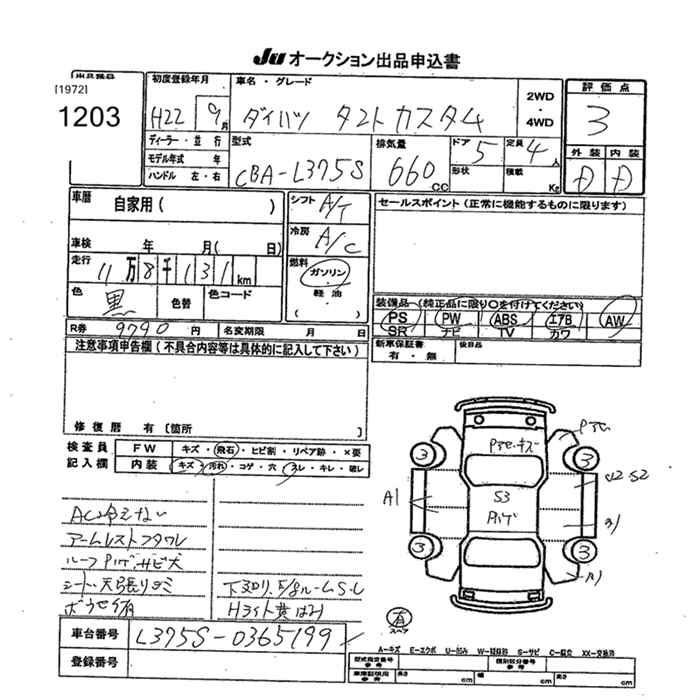 JU オークション出品申込書
出品番号
[1972]
1203
初度登録年月
H22 9月
車名・グレード
ダイハツ タントカスタム
2WD
・
4WD
評価点
3
ディーラー・並行
モデル年式 年
ハンドル 左・右
型式
CBA-L375S
排気量
660 CC
ドア 5
形状
定員 4人
積載 Kg
外装 内装
D D
車歴
自家用( )
車検 年 月( 日)
走行
11万8千131km
色 黒
色替
色コード
シフト A/T
冷房 A/C
燃料
ガソリン
・
軽油
( )
セールスポイント(正常に機能するものに限ります)
装備品(純正品に限り○を付けてください)
PS PW ABS エアB AW
SR ナビ TV カワ
新車保証書
有・無
後日品
R券 9790円
名変期限 月 日
注意事項申告欄(不具合内容等は具体的に記入して下さい)
修復歴 有〔箇所
検査員
記入欄
FW キズ・飛石・ヒビ割・リペア跡・×要
内装 キズ・汚れ・コゲ・穴・スレ・キレ・破レ
AC冷えない
アームレストフタワレ
ルーフPハゲ、サビ大
シート、天張りシミ
下廻り、5/8ルームS・U
Hライト黄ばみ
3
3
3
3
A1
S3
Pハゲ
U2・S2
有
スペア
A-キズ E-エクボ U-凹み W-補修跡 S-サビ C-腐立 XX-交換済
車台番号 L375S-0365199
登録番号
型式指定番号
参考
類別区分番号
参考
車庫証明用
参考
長さ cm 幅 cm 高さ cm